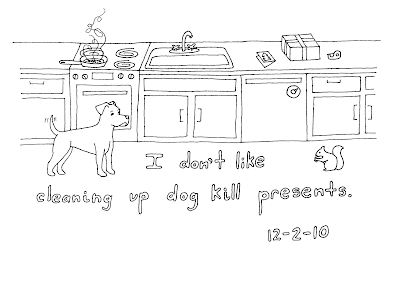 I don't like
cleaning up dog kill presents.
12-2-10